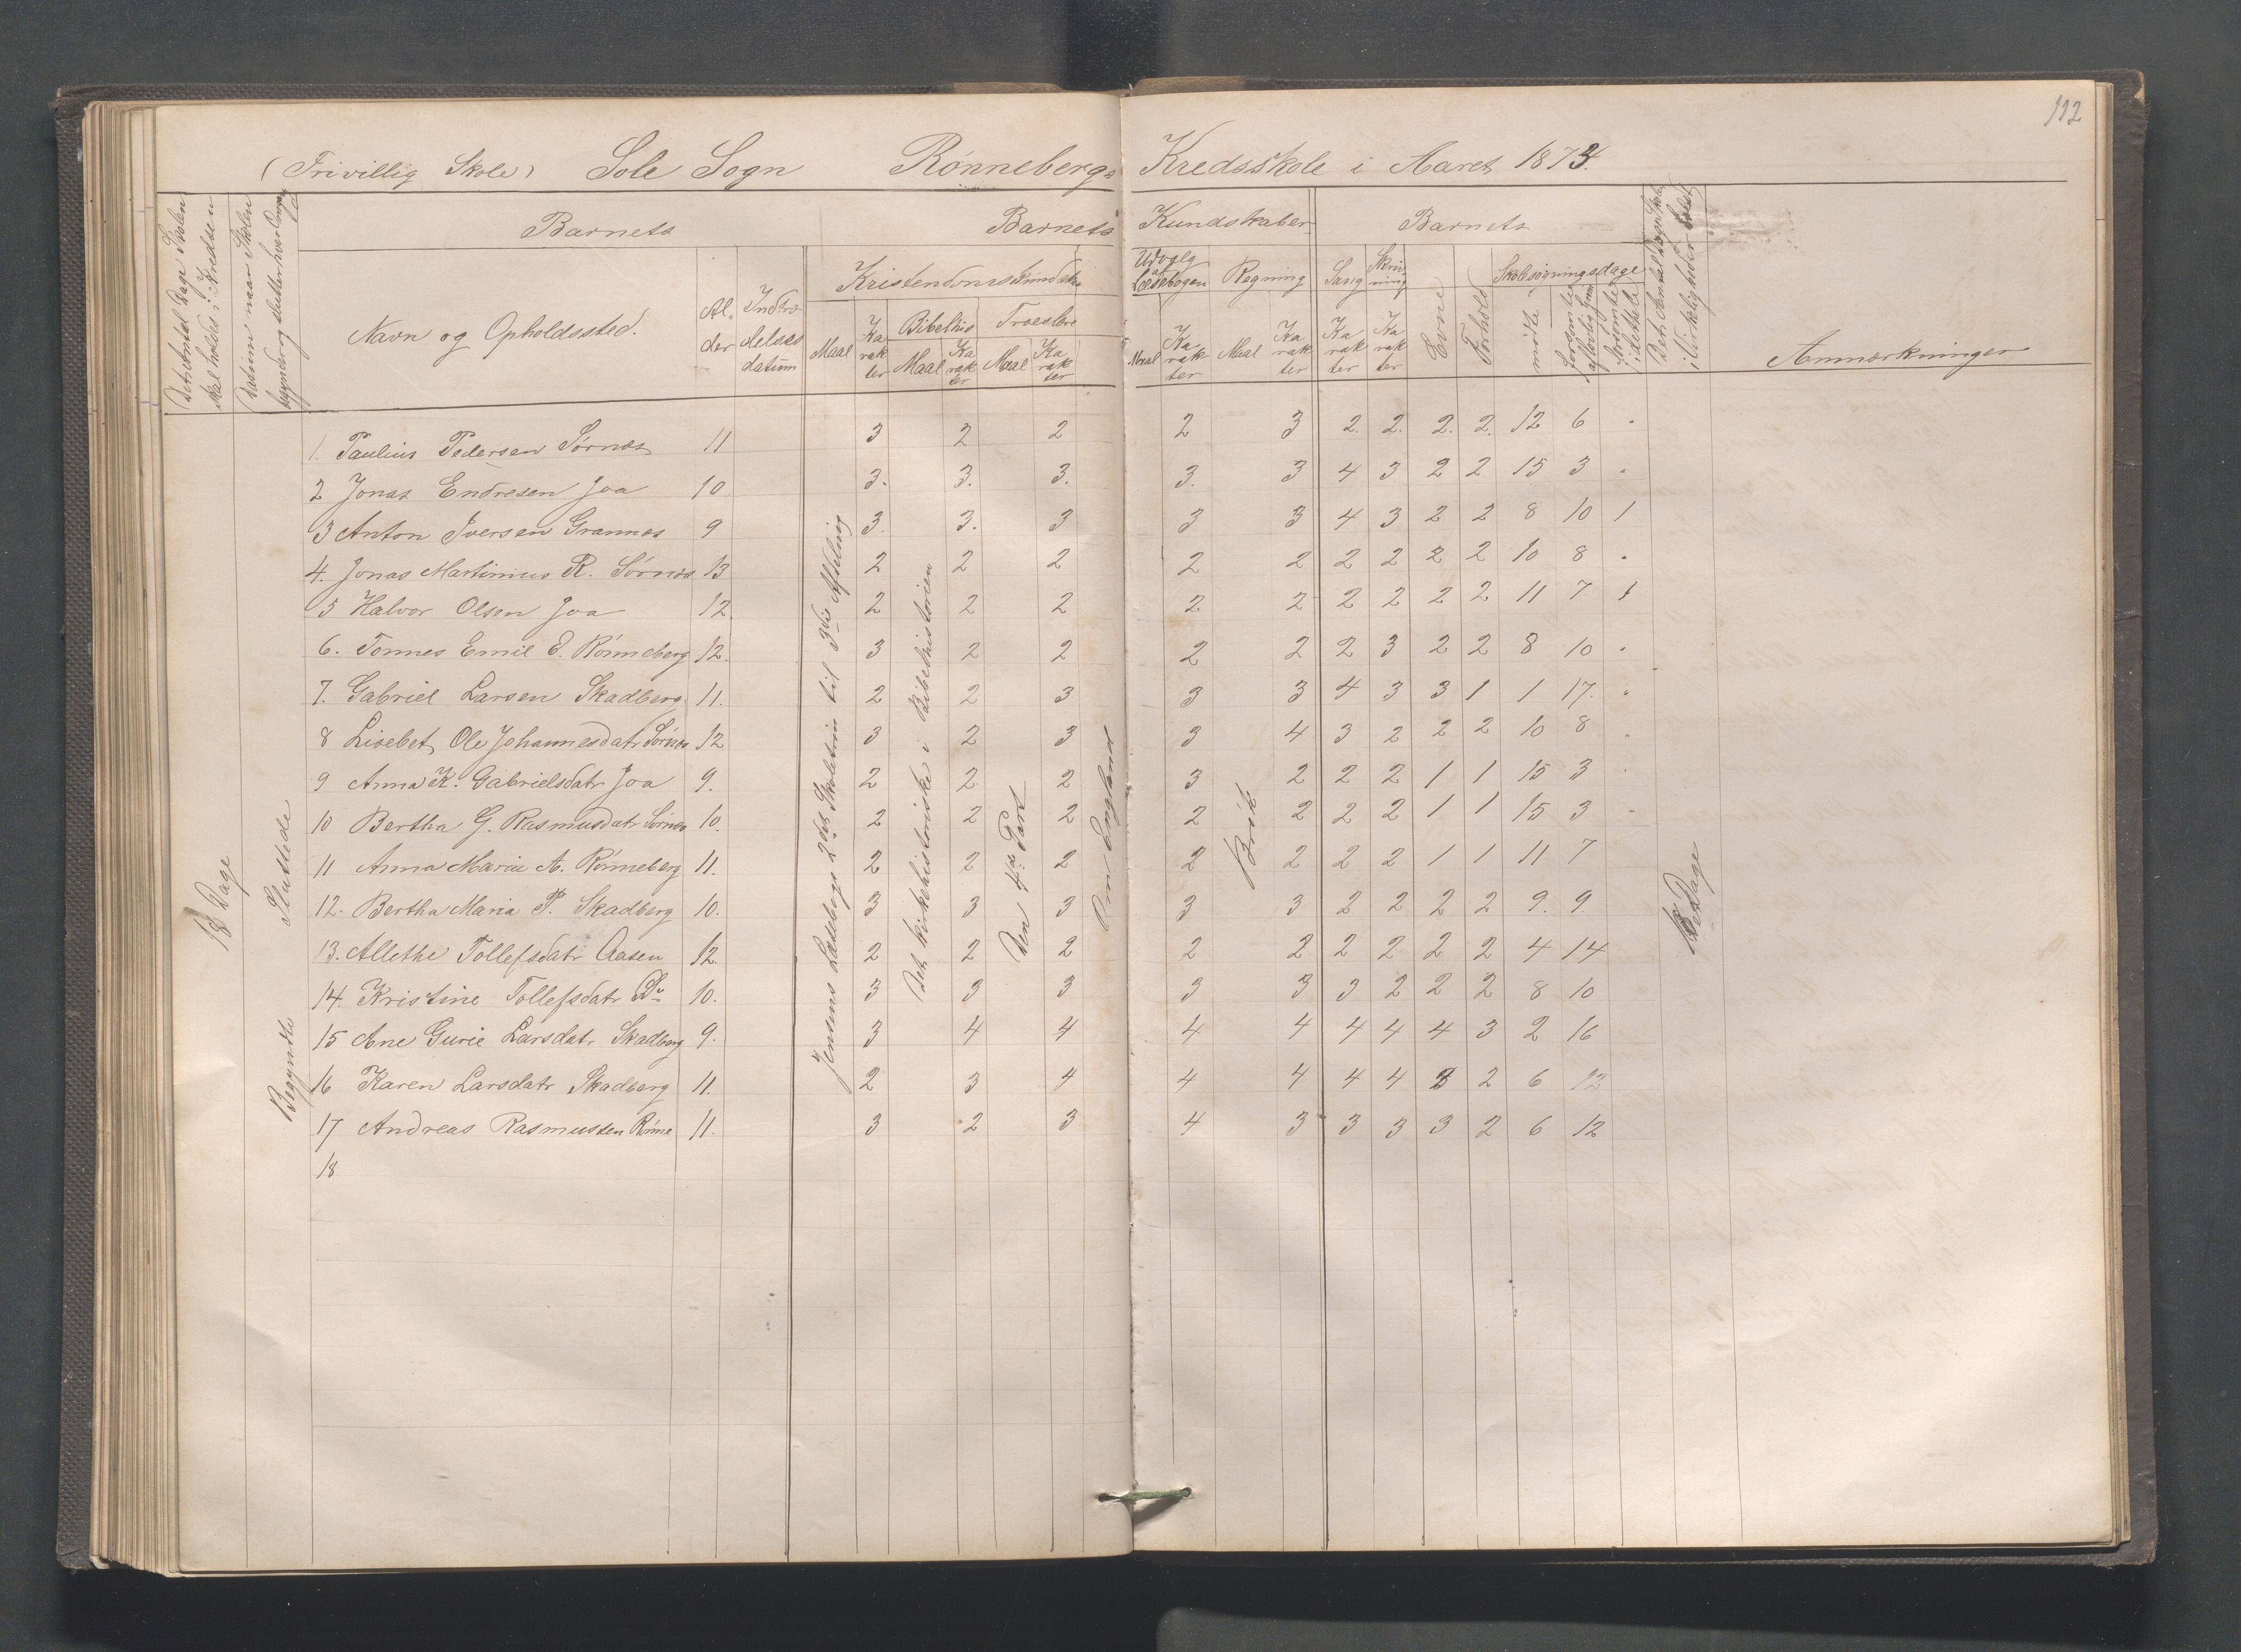 112
(Frivillig Skole) Sole Sogn Rønnebergs Kredsskole i Aaret 1873.
Det Antal Dage Skolen skal holdes i Kredsen
Datum naar Skolen begynder og slutter hver Omgang
Barnets
Barnets Kundskaber
Barnets
Det Antal Dage Skolen i Virkeligheden er holdt
Navn og Opholdssted.
Al-der
Indtrædelses datum
Kristendomskundskab
Udvalg af Læsebogen
Regning
Sang
Skrivning
Evne
Forhold
Skolesøgningsdage
Maal
Karakter
Bibelhis
Troeslære
Maal Karakter Maal Karakter
Maal Karakter Maal Karakter Karakter Karakter
mødte
forsømte af lovlig Grund
forsømte i det hele
Anmærkninger
18 Dage
Begyndte Sluttede
Jensens Læsebogs 2det Skoletrin til 3die Afdeling
Det kirkehistoriske i Bibelhistorien
Den 4de Part
Om England
Brøk
18 Dage
1. Paulius Pedersen Sørnes 11 3 2 2 2 3 2. 2. 2. 2. 12 6 "
2 Jonas Endresen Joa 10 3. 3. 3. 3. 3 4 3 2 2 15 3 "
3 Anton Iversen Grannes 9 3. 3. 3 3 3 4 3 2 2 8 10 1
4. Jonas Martinius R. Sørnes 13 2 2 2 2 2 2 2 2 2 10 8 "
5 Halvor Olsen Joa 12. 2 2 2 2 2 2 2 2 2 11 7 1
6. Tønnes Emil E. Rønneberg 12. 3 2 2 2 2 2 3 2 2 8 10 "
7. Gabriel Larsen Skadberg 11. 2 2 3 3 3 4 3 3 1 1 17. "
8 Lisebet Ole Johannesdatr Sørnes 12 3 2 3 3 4 3 2 2 2 10 8 "
9 Anna K. Gabrielsdatr Joa 9. 2 2 2 3 2 2 2 1 1 15 3 "
10 Bertha G. Rasmusdatr Sørnes 10. 2 2 2 2 2 2 2 1 1 15 3 "
11 Anna Maria A. Rønneberg 11. 2 2 2 2 2 2 2 1 1 11 7
12. Bertha Maria P. Skadberg 10. 3 3 3 3 3 2 2 2 2 9. 9.
13. Allethe Tollefsdatr Aasen 12. 2 2 2 2 2 2 2 2 2 4 14
14. Kristine Tollefsdatr Do 10. 3 3 3 3 3 3 2 2 2 8 10
15 Ane Gurie Larsdatr Skadberg 9. 3 4 4 4 4 4 4 4 3 2 16
16 Karen Larsdatr Skadberg 11. 2 3 4 4 4 4 4 3 2 6 12
17 Andreas Rasmussen Rønne 11. 3 2 3 4 3 3 3 3 2 6 12
18